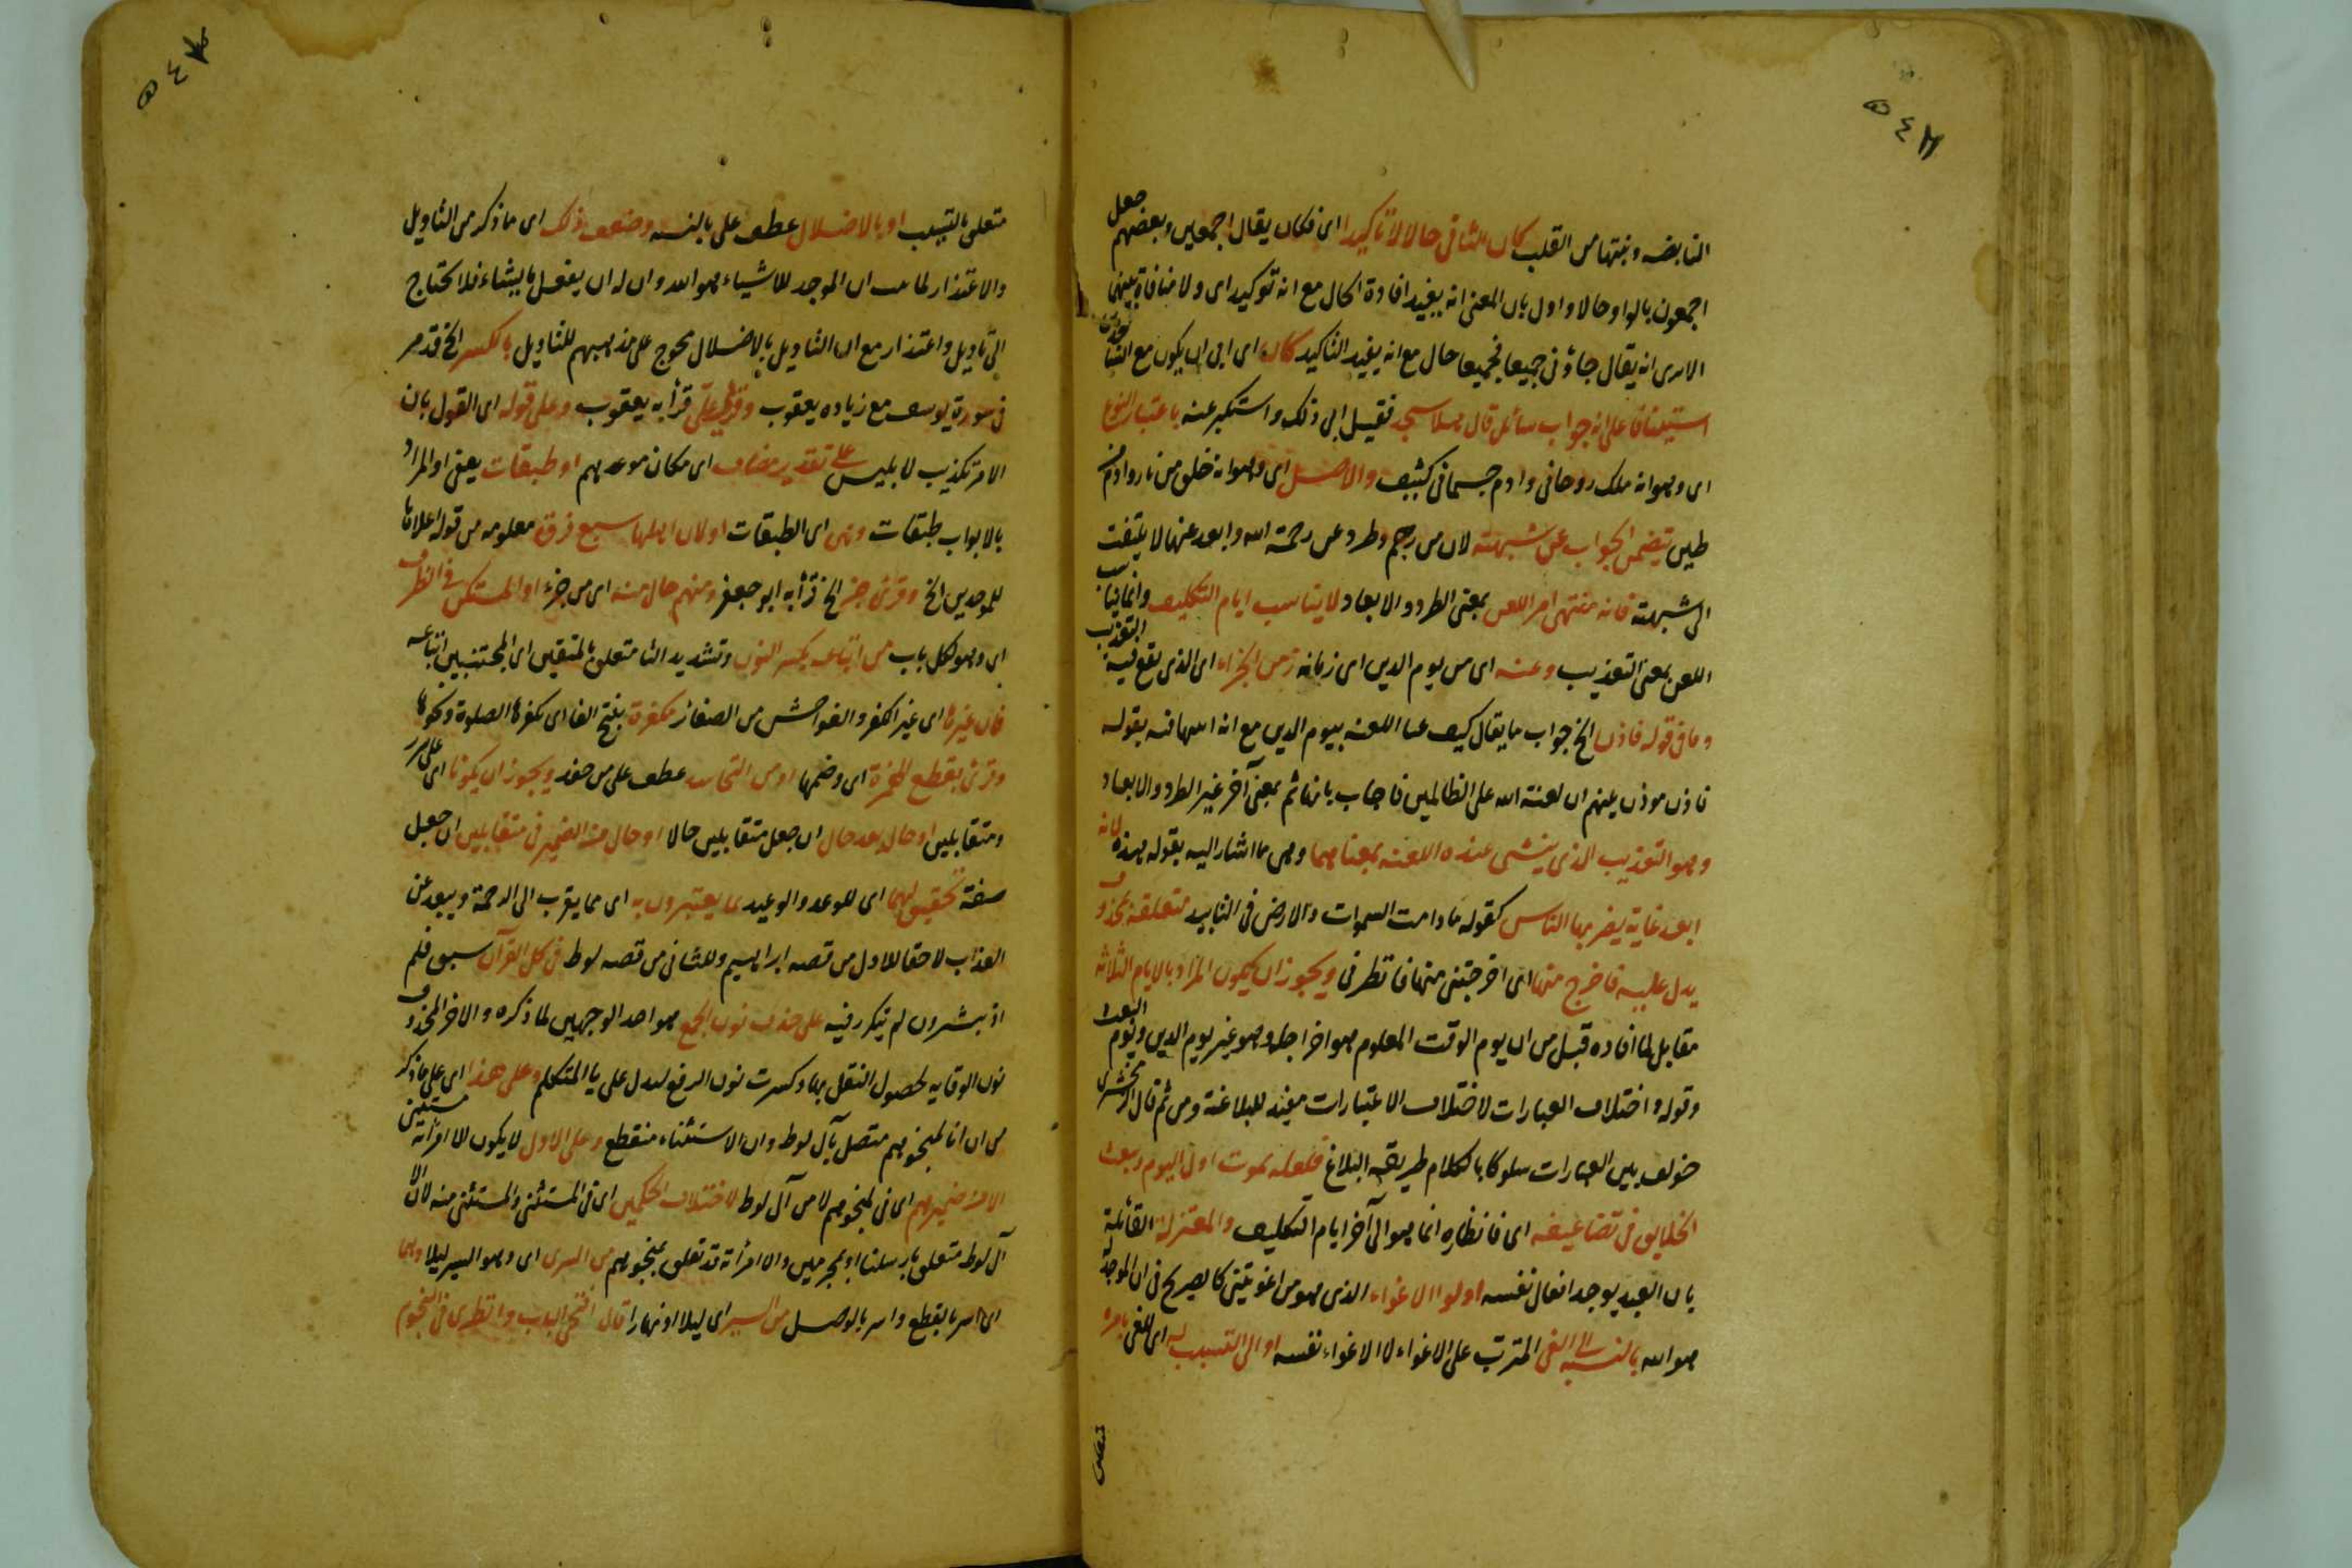 النابضه ونبتها من القلب كان الثانى حالا لا تاكيدا اى فكان يقال اجمعين وبعضهم جعل
اجمعون بالواو حالا واول بان المعنى انه يفيد افادة الحال مع انه توكيد اى ولا منافاة بينهما
الا ترى انه يقال جاؤنى جميعا فجميعا حال مع انه يفيد التاكيد كان اى ابى ان يكون مع
استينافا على انه جواب سائل قال هلا سجد فقيل ابى ذلك واستكبر عنه باعتبار النوع
اى وهو انه ملك روحانى وادم جسمانى كثيف والاصل اى وهو انه خلق من نار وادم من
طين يتضمن الجواب عن شبهته لان من رجم وطرد عن رحمة الله وابعد عنها لا يلتفت
الى شبهته فانه منتهى امر اللعن بمعنى الطرد والابعاد لا يناسب ايام التكليف وانما يناسب
اللعن بمعنى التعذيب وعنه اى من يوم الدين اى زمانه زمن الجزاء اى الذى يقع فيه التعذيب
وما فى قوله فاذن الخ جواب ما يقال كيف اللعنه بيوم الدين مع انه بقوله
فاذن موذن بينهم ان لعنة الله على الظالمين فاجاب بانها ثم بمعنى آخر غير الطرد والابعاد
وهو التعذيب الذى ينسى عنده اللعنه بمعناهما وهى ما اشار اليه بقوله بهذه لانه
ابعد غاية يضربها الناس كقوله ما دامت السموات والارض فى التابيد متعلقة بمحذوف
يدل عليه فاخرج منها اى اخرجتنى منها فانظرنى ويجوز ان يكون المراد بالايام الثلاثة
مقابل لما افاده قبل من ان يوم الوقت المعلوم هو اخر اجله وهو غير يوم الدين ويوم البعث
وقوله واختلاف العبارات لاختلاف الاعتبارات مفيد للبلاغة ومن ثم قال الزمخشرى
خولف بين العبارات سلوكا بالكلام طريقة البلاغ فلعله يموت اول اليوم ويبعث
الخلايق فى تضاعيفه اى فانظاره انما هو الى آخر ايام التكليف والمعتزلة القائلة
بان العبد يوجد افعال نفسه اولوا الاغواء الذى هو من اغويتنى كالصريح فى ان الموجد له
هو الله بالنسبة الى الغى المترتب على الاغواء لا الاغواء نفسه او الى التسبب له اى للغى بامره
متعلق بالتسبب او بالاضلال عطف على بالنسبه وضعف ذلك اى ما ذكر من التاويل
والاعتذار لما مر ان الموجد للاشياء هو الله وان له ان يفعل ما يشاء فلا احتاج
الى تاويل واعتذار مع ان التاويل بالاضلال محوج على مذهبهم للتاويل بالكسر الخ قد مر
فى سورة يوسف مع زياده يعقوب وقرئ على قرأ به يعقوب وعلى قوله اى القول بان
الامر تكذيب لابليس على تقدير مضاف اى مكان موعدهم او طبقات يعنى او المراد
بالابواب طبقات وهى اى الطبقات اولان اهلها سبع فرق معلومه من قوله اعلاها
للموحدين الخ وقرئ جز الخ قرأ به ابو جعفر ومنهم حال منه اى من جزء او المستكن فى الظرف
اى وهو لكل باب من اتباعه بكسر النون وتشديد التا متعلق بالمتقين اى المجتنبين اتباعه
فان غيرها اى غير الكفر والفواحش من الصغائر مكفرة بفتح الفا اى تكفرها الصلوة ونحوها
وقرئ بقطع الهمزة اى وضمها او من التحاسد عطف على من حقد ويجوز ان يكونا اى على سرر
ومتقابلين او حال بعد حال ان جعل متقابلين حالا او حال من الضمير فى متقابلين ان جعل
صفة تحقيق لهما اى للوعد والوعيد بما يعتبرون به اى مما يقرب الى الرحمة ويبعد عن
العذاب لاحقا للاول من قصه ابراهيم وللثانى من قصه لوط فى كل القرآن سبق فلم
اذ تبشرون لم يتكرر فيه على حذف نون الجمع هو احد الوجهين لما ذكره والاخر المحذوف
نون الوقايه لحصول الثقل بها وكسرت نون الرفع ليدل على يا المتكلم وعلى هذا اى على ما ذكر
من ان انا لمنجوهم متصل بآل لوط وان الاستثناء منقطع وعلى الاول لا يكون الا امراته مستثنى
الا من ضميرهم اى فى لمنجوهم لا من آل لوط لاختلاف الحكمين اى فى المستثنى والمستثنى منه لان الا
آل لوط متعلق بارسلنا او بمجرمين والا امرأته قد تعلق بمنجوهم من السرى اى وهو السير ليلا وهما
اى اسر بالقطع واسر بالوصل من السير اى ليلا او نهارا قال افتحى الباب وانظرى فى النجوم